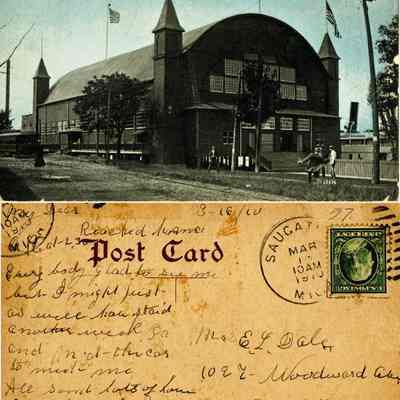 Dear
3-16/10
Reached home
at 2 30
Post Card
SAUGATUCK
MAR
10 AM
1910
MICH
Every body glad to see me
but I might just
as well have staid
another week
and
to meet me
Mrs E. L. Dale
1027 - Woodward Ave
All send lots of love